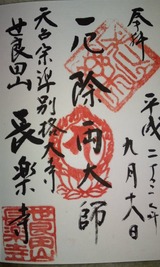 奉拝
平成二十二年九月十八日
厄除両大師
天台宗準別格大寺
世良田山
長楽寺